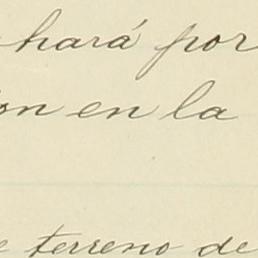 hará por
on en la
e terreno de